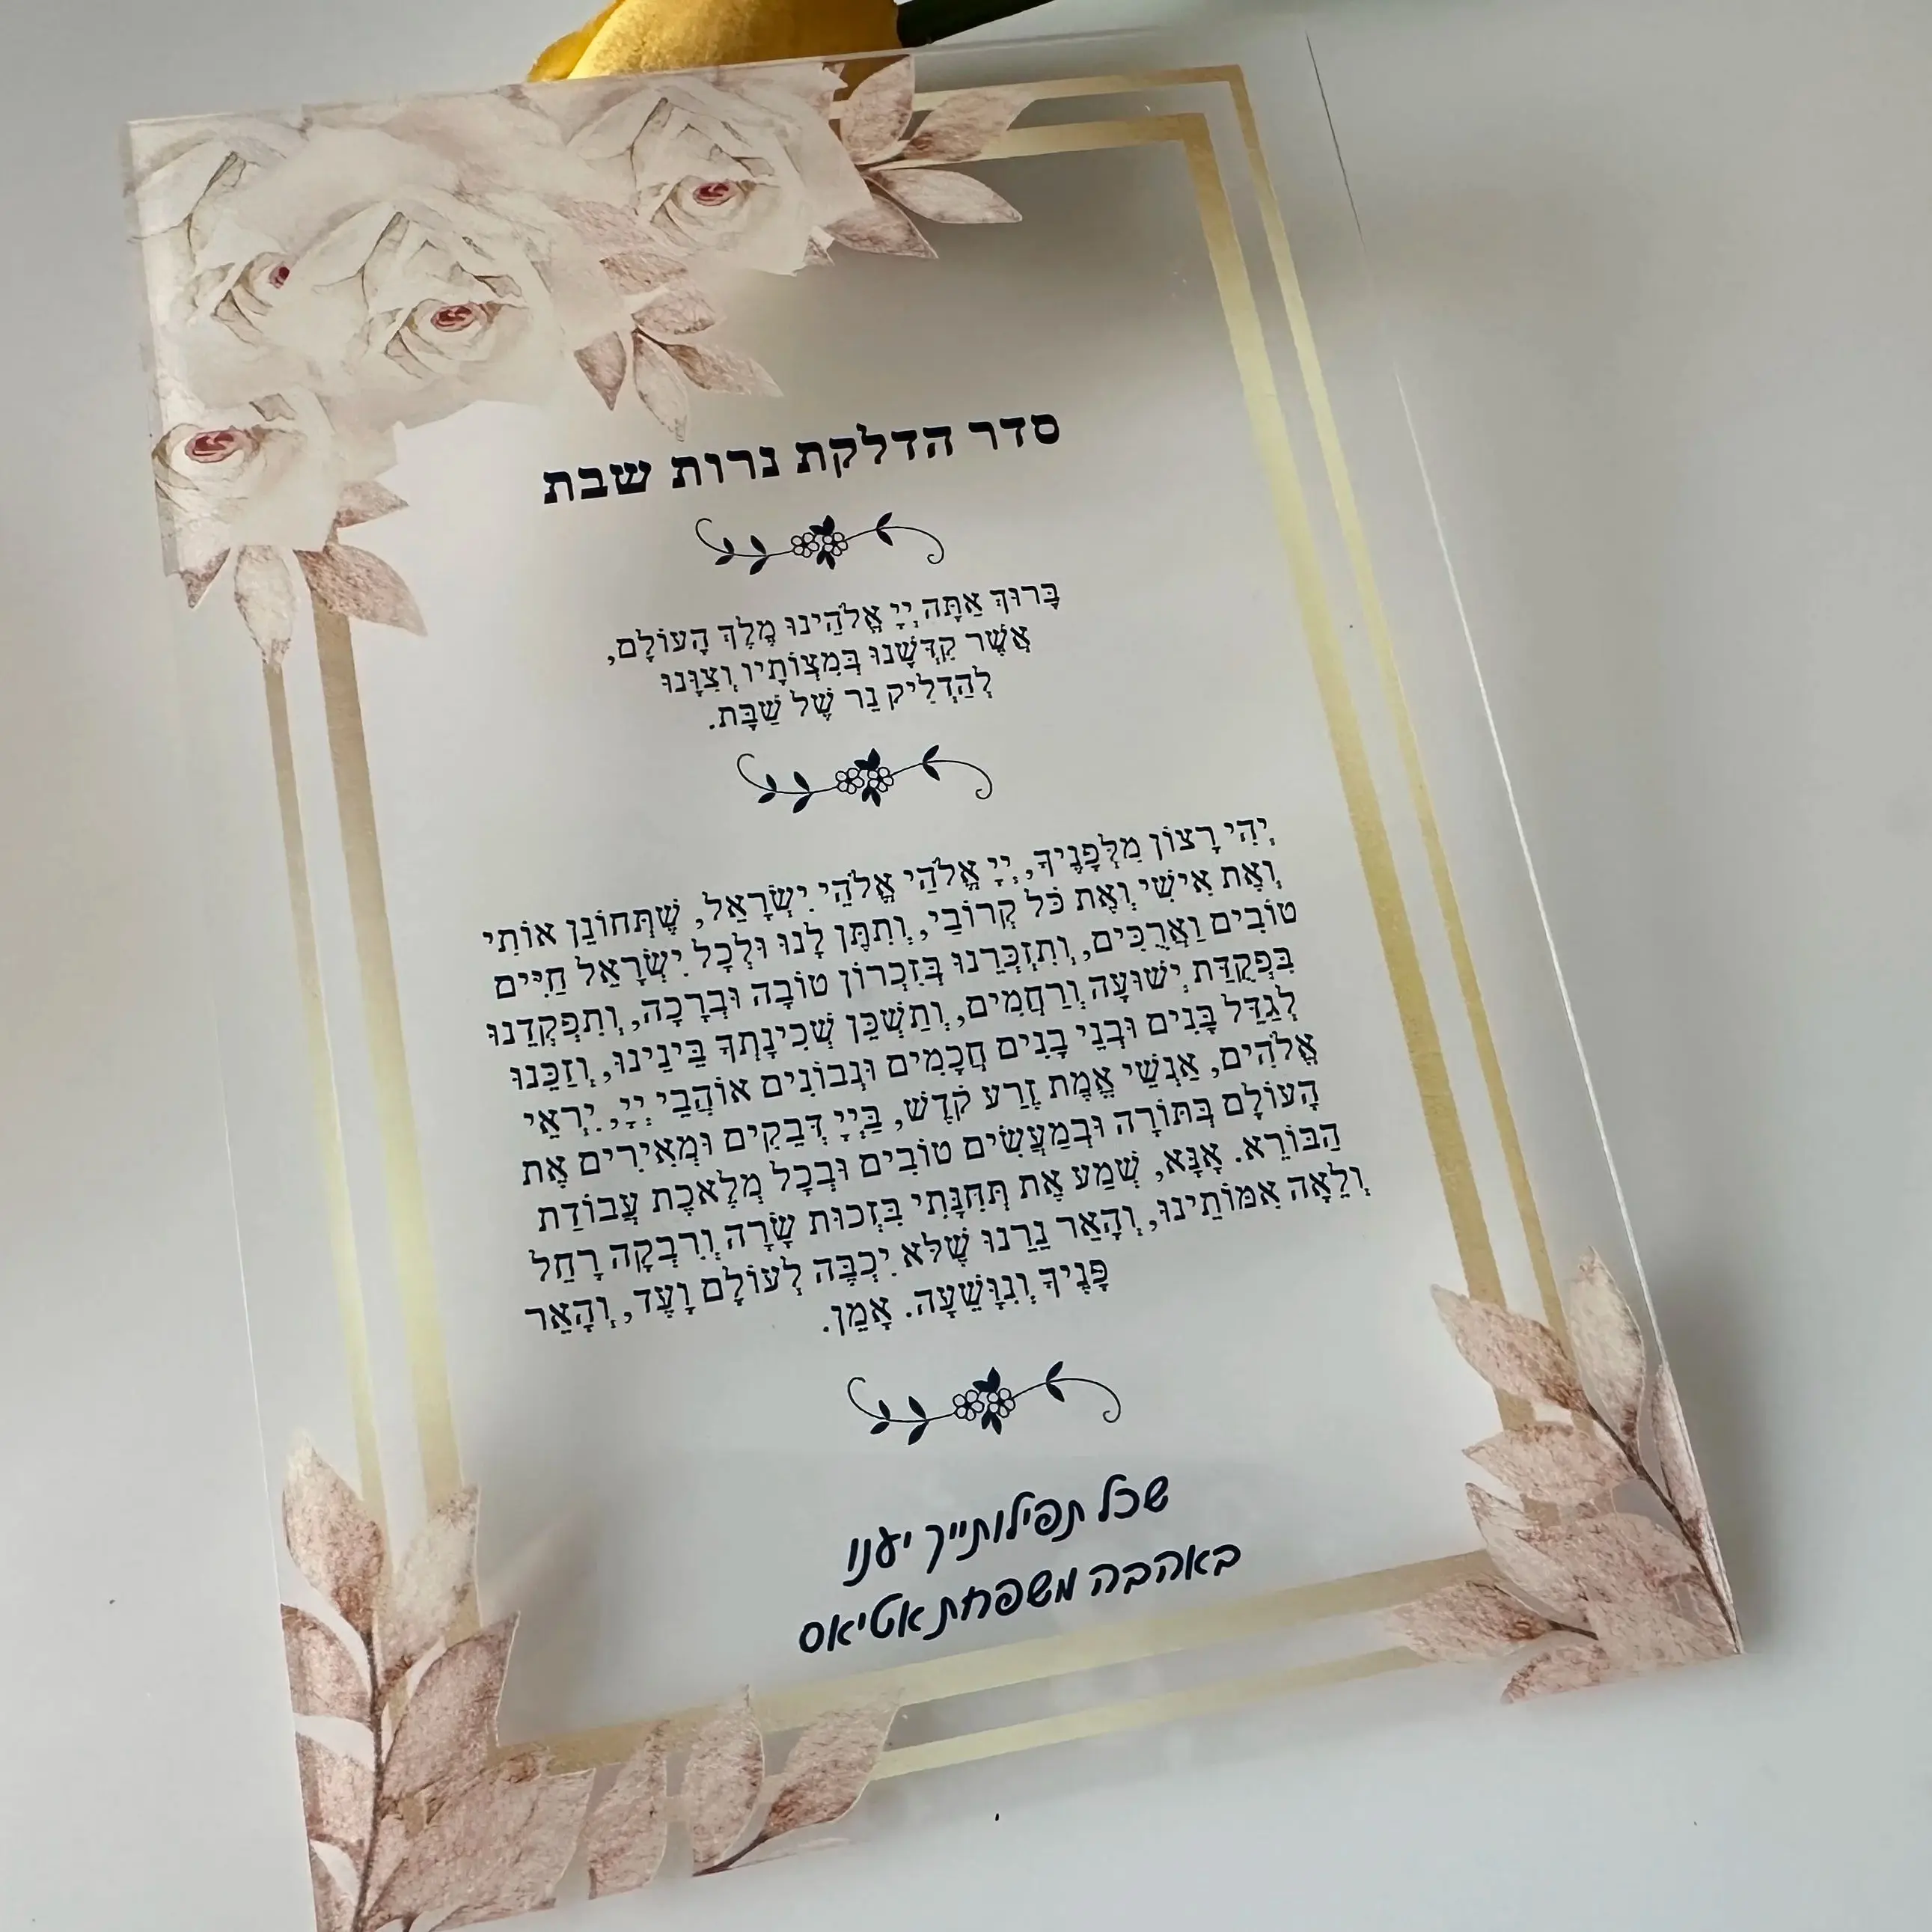 סדר הדלקת נרות שבת
בָּרוּךְ אַתָּה יְיָ אֱלֹהֵינוּ מֶלֶךְ הָעוֹלָם,
אֲשֶׁר קִדְּשָׁנוּ בְּמִצְוֹתָיו וְצִוָּנוּ
לְהַדְלִיק נֵר שֶׁל שַׁבָּת.
יְהִי רָצוֹן מִלְּפָנֶיךָ, יְיָ אֱלֹהַי אֱלֹהֵי יִשְׂרָאֵל, שֶׁתְּחוֹנֵן אוֹתִי
וְאֶת אִישִׁי וְאֶת כֹּל קְרוֹבַי, וְתִתֵּן לָנוּ וּלְכָל יִשְׂרָאֵל חַיִּים
טוֹבִים וַאֲרֻכִּים, וְתִזְכְּרֵנוּ בְּזִכְרוֹן טוֹבָה וּבְרָכָה, וְתִפְקְדֵנוּ
בִּפְקֻדַּת יְשׁוּעָה וְרַחֲמִים, וְתַשְׁכֵּן שְׁכִינָתְךָ בֵּינֵינוּ, וְזַכֵּנוּ
לְגַדֵּל בָּנִים וּבְנֵי בָנִים חֲכָמִים וּנְבוֹנִים אוֹהֲבֵי יְיָ, יִרְאֵי
אֱלֹהִים, אַנְשֵׁי אֱמֶת זֶרַע קֹדֶשׁ, בַּיְיָ דְּבֵקִים וּמְאִירִים אֶת
הָעוֹלָם בְּתּוֹרָה וּבְמַעֲשִׂים טוֹבִים וּבְכָל מְלֶאכֶת עֲבוֹדַת
הַבּוֹרֵא. אָנָּא, שְׁמַע אֶת תְּחִנָּתִי בִּזְכוּת שָׂרָה וְרִבְקָה רָחֵל
וְלֵאָה אִמּוֹתֵינוּ, וְהָאֵר נֵרֵנוּ שֶׁלֹּא יִכְבֶּה לְעוֹלָם וָעֶד, וְהָאֵר
פָּנֶיךָ וְנִוָּשֵׁעָה. אָמֵן.
שכל תפילותייך יענו
באהבה משפחת אטיאס